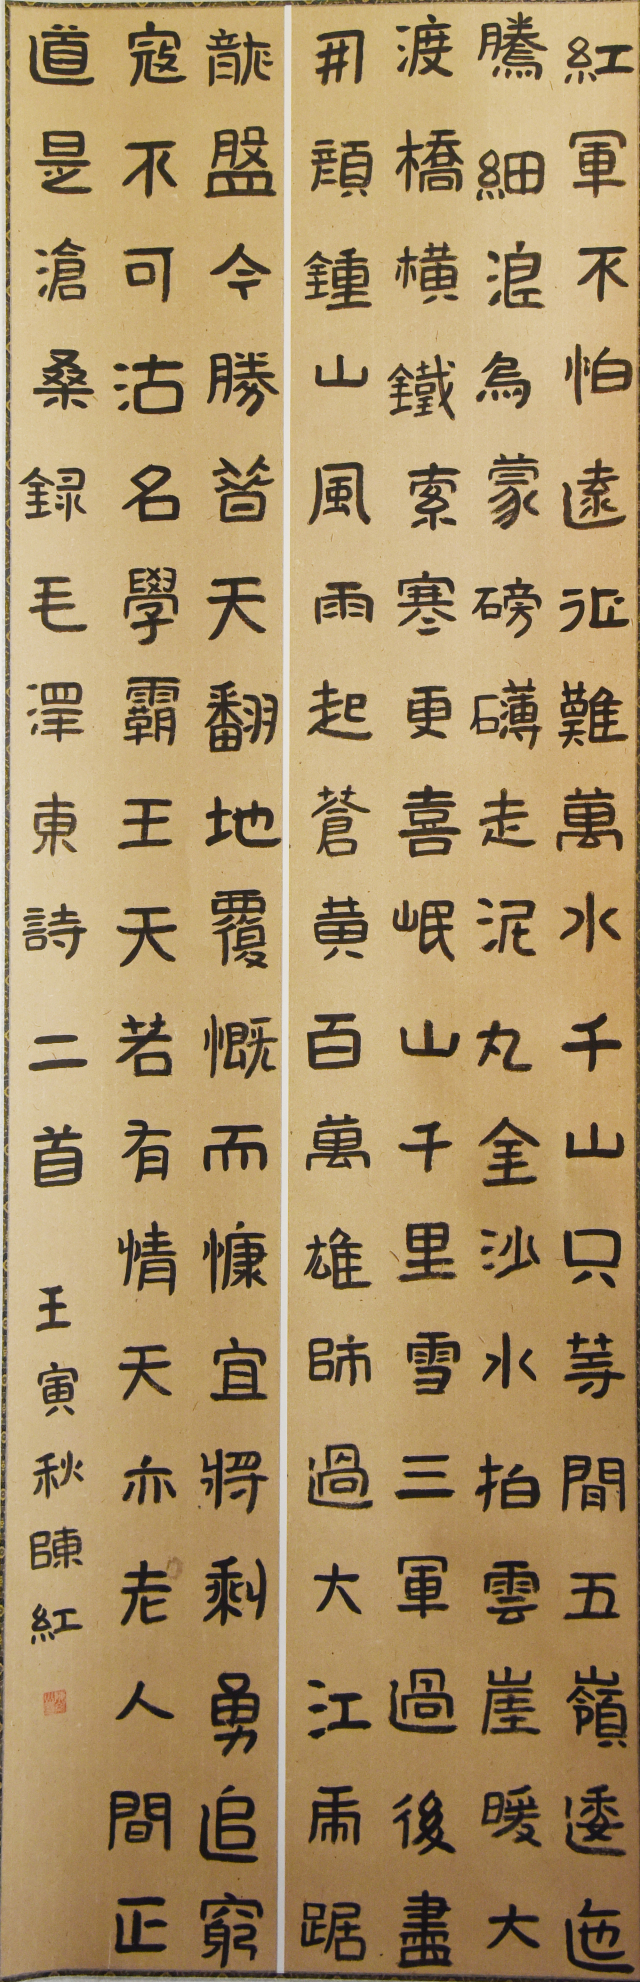 紅軍不怕遠征難萬水千山只等間五嶺逶迤
騰細浪烏蒙磅礴走泥丸金沙水拍雲崖暖大
渡橋橫鐵索寒更喜岷山千里雪三軍過後盡
開顏鍾山風雨起蒼黃百萬雄師過大江虎踞
龍盤今勝昔天翻地覆慨而慷宜將剩勇追窮
寇不可沽名學霸王天若有情天亦老人間正
道是滄桑錄毛澤東詩二首 壬寅秋陳紅